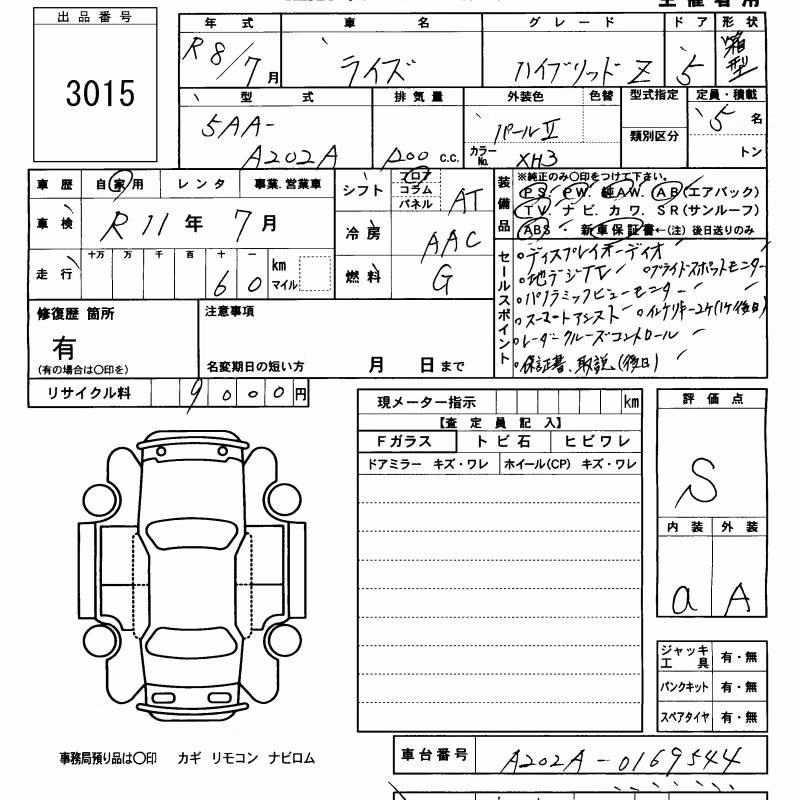 出品番号
3015
年式 車名 グレード ドア 形状
R8/7月 ライズ ハイブリッド Z 5 箱型
型式 排気量 外装色 色替 型式指定 定員・積載
5AA-A202A 1200 c.c. パールⅡ 類別区分 5名
カラーNo. XH3 トン
車歴 自家用 レンタ 事業.営業車
シフト フロア コラム パネル AT
車検 R11年 7月
冷房 AAC
走行 十万 万 千 百 十 一 km マイル
60
燃料 G
装備品
※純正のみ〇印をつけて下さい。
PS. PW. 純AW. AB(エアバック)
TV. ナビ. カワ. SR(サンルーフ)
ABS・ 新車保証書←(注) 後日送りのみ
セールスポイント
。ディスプレイオーディオ
。地デジTV 。ブラインドスポットモニター
。パノラミックビューモニター
。スマートアシスト 。インテリキー2ケ(1ケ後日)
。レーダークルーズコントロール
。保証書、取説(後日)
修復歴 箇所
有
(有の場合は〇印を)
注意事項
名変期日の短い方 月 日まで
リサイクル料 9000円
現メーター指示 km
【査定員記入】
Fガラス トビ石 ヒビワレ
ドアミラー キズ・ワレ ホイール(CP) キズ・ワレ
評価点
S
内装 外装
a A
ジャッキ工具 有・無
パンクキット 有・無
スペアタイヤ 有・無
事務局預り品は〇印 カギ リモコン ナビロム
車台番号 A202A-0169544